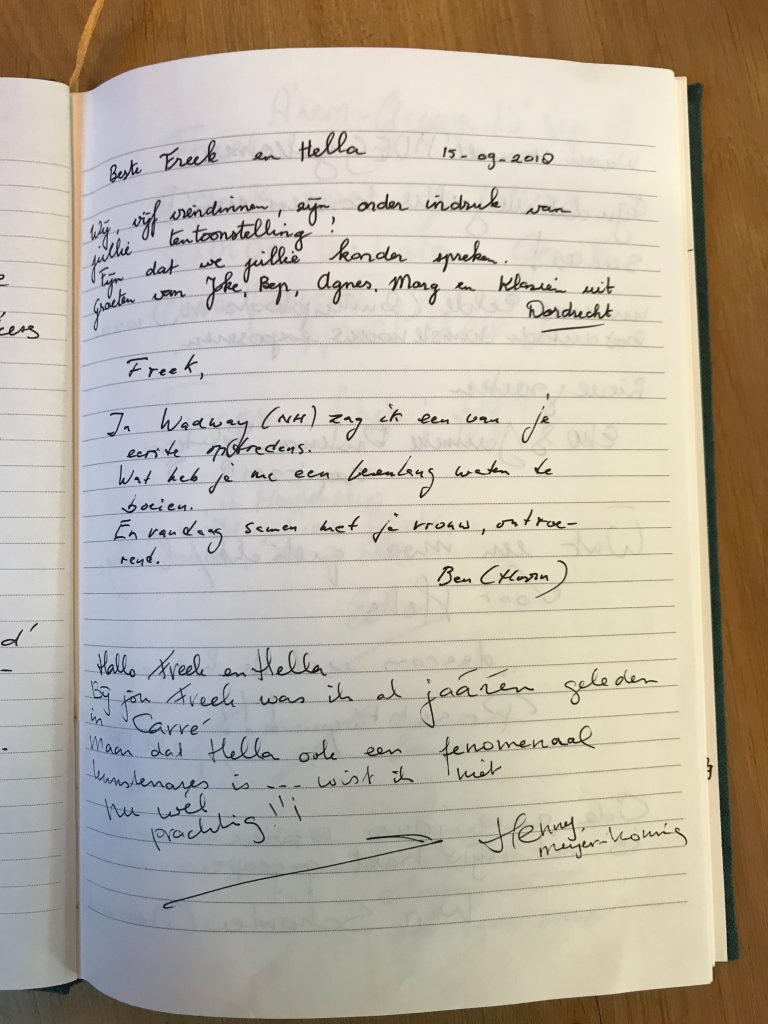 Beste Freek en Hella 15-09-2018
Wij, vijf vriendinnen, zijn onder indruk van
jullie tentoonstelling!
Fijn dat we jullie konden spreken.
Groeten van Joke, Bep, Agnes, Marg en Klasien uit
Dordrecht
Freek,
In Wadway (NH) zag ik een van je
eerste optredens.
Wat heb je me een levenlang weten te
boeien.
En vandaag samen met je vrouw, ontroe-
rend.
Ben (Hoorn)
Hallo Freek en Hella
Bij jou Freek was ik al jááren geleden
in Carré
Maar dat Hella ook een fenomenaal
kunstenares is --- wist ik niet
nu wèl
prachtig!!!
Henny
Meijer-Koning